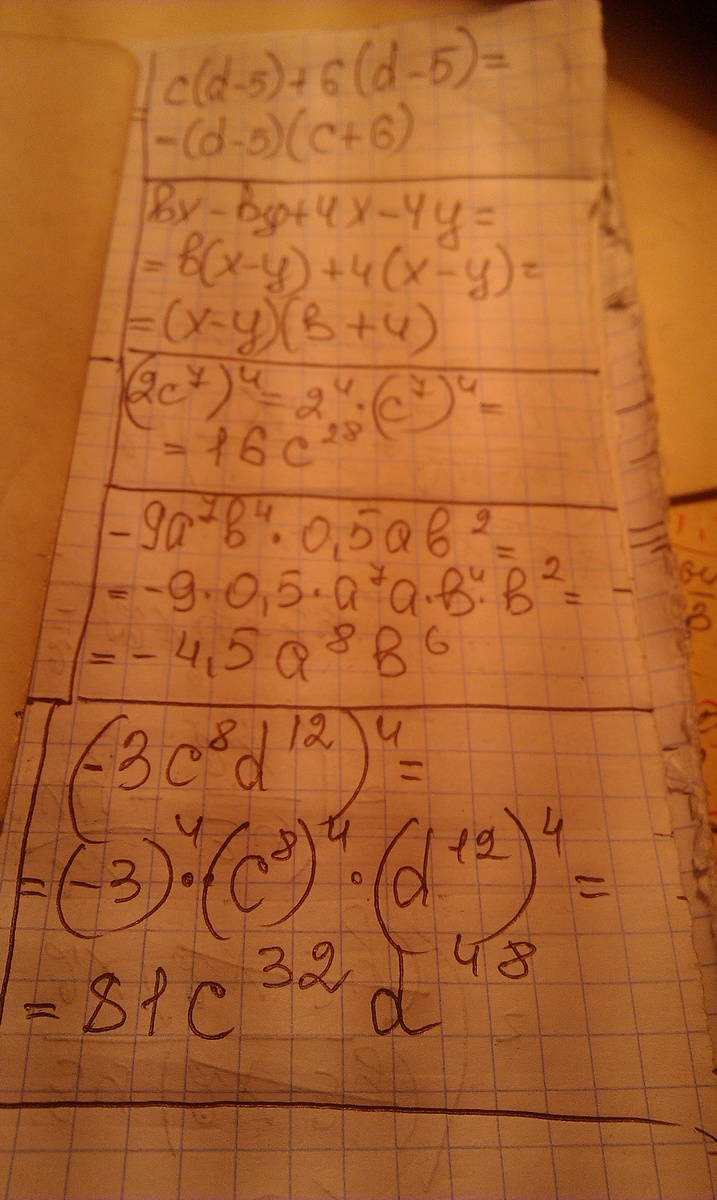 c(d-5)+6(d-5)=
-(d-5)(c+6)
вx-вy+4x-4y=
=в(x-y)+4(x-y)=
=(x-y)(в+4)
(2c⁷)⁴=2⁴·(c⁷)⁴=
=16c²⁸
-9a⁷в⁴·0,5aв²=
=-9·0,5·a⁷a·в⁴·в²=
=-4,5a⁸в⁶
(-3c⁸d¹²)⁴=
=(-3)⁴·(c⁸)⁴·(d¹²)⁴=
=81c³²d⁴⁸